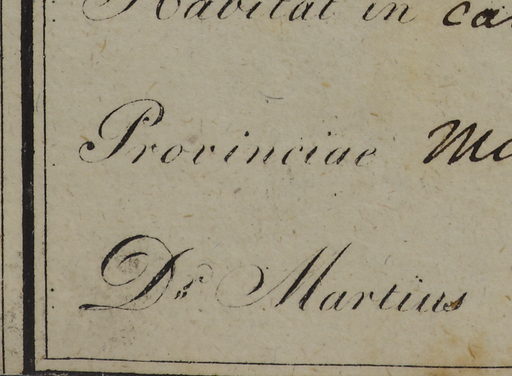 Habitat in
Provinciae
Dr Martius